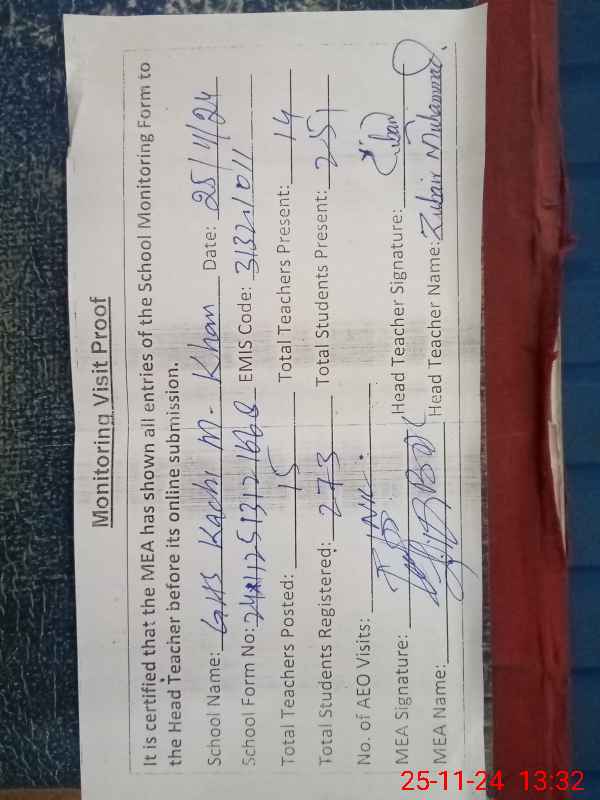 Monitoring Visit Proof
It is certified that the MEA has shown all entries of the School Monitoring Form to
the Head Teacher before its online submission.
School Name: GHS Kachi M. Khan Date: 25/11/24
School Form No: EMIS Code:
Total Teachers Posted: 15 Total Teachers Present: 14
Total Students Registered: 273 Total Students Present: 251
No. of AEO Visits: Nil.
MEA Signature: Head Teacher Signature: Zubair
MEA Name: Head Teacher Name: Zubair Muhammad
25-11-24 13:32